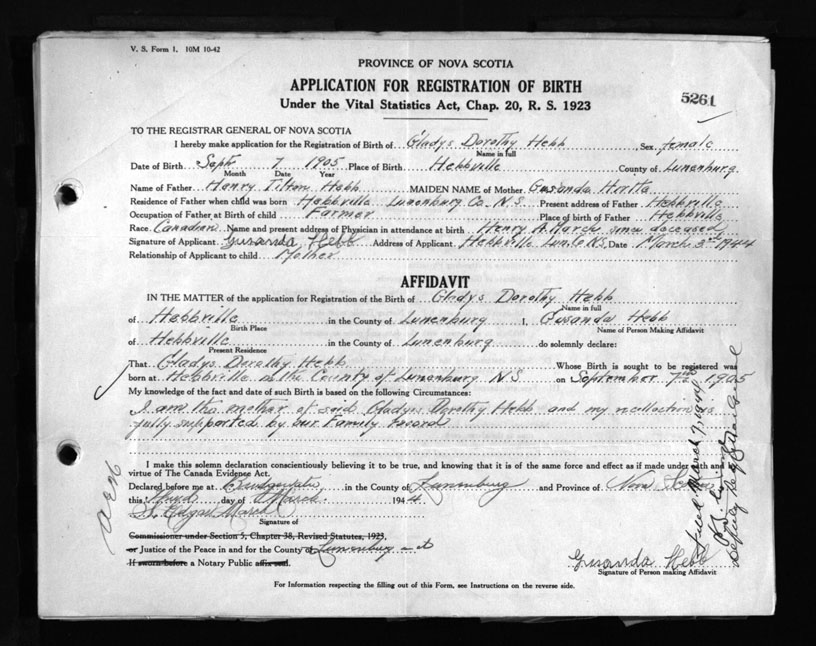 V. S. Form 1. 10M 10-42
PROVINCE OF NOVA SCOTIA
APPLICATION FOR REGISTRATION OF BIRTH
5261
Under the Vital Statistics Act, Chap. 20, R. S. 1923
TO THE REGISTRAR GENERAL OF NOVA SCOTIA
I hereby make application for the Registration of Birth of Gladys Dorothy Hebb, Sex female
Name in full
Date of Birth Sept 7 1905 Place of Birth Hebbville County of Lunenburg
Month Date Year
Name of Father Henry Tilton Hebb MAIDEN NAME of Mother Gusanda
Residence of Father when child was born Hebbville Lunenburg Co. N.S. Present address of Father Hebbville
Occupation of Father at Birth of child Farmer Place of birth of Father Hebbville
Race. Canadian Name and present address of Physician in attendance at birth Henry A. March since deceased
Signature of Applicant Gusanda Hebb Address of Applicant Hebbville Lun. Co N.S. Date March 3rd 1944
Relationship of Applicant to child Mother
AFFIDAVIT
IN THE MATTER of the application for Registration of the Birth of Gladys Dorothy Hebb
Name in full
of Hebbville in the County of Lunenburg I, Gusanda Hebb
Birth Place Name of Person Making Affidavit
of Hebbville in the County of Lunenburg do solemnly declare:
Present Residence
That Gladys Dorothy Hebb Whose Birth is sought to be registered was
born at Hebbville in the County of Lunenburg N.S. on September 7th 1905
My knowledge of the fact and date of such Birth is based on the following Circumstances:
I am the mother of said Gladys Dorothy Hebb and my recollection is
fully supported by our Family Record
I make this solemn declaration conscientiously believing it to be true, and knowing that it is of the same force and effect as if made under oath and by
virtue of The Canada Evidence Act.
Declared before me at Bridgewater in the County of Lunenburg and Province of Nova Scotia
this Third day of March 1944
S. Edgar March
Signature of
Commissioner under Section 5, Chapter 38, Revised Statutes, 1923,
or Justice of the Peace in and for the County of Lunenburg
If sworn before a Notary Public affix seal.
Gusanda Hebb
Signature of Person making Affidavit
For Information respecting the filling out of this Form, see Instructions on the reverse side.
Filed March 7, 1944
Deputy Registrar General